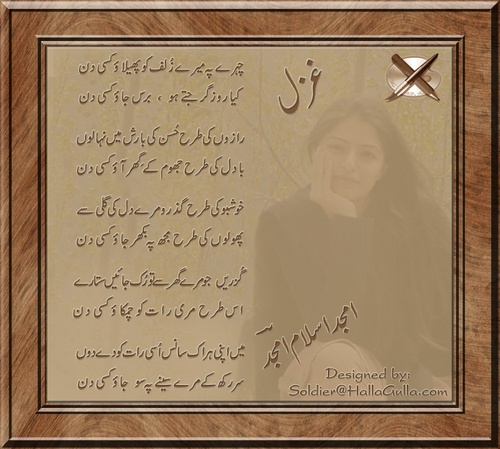 غزل
چہرے پہ میرے زُلف کو پھیلاؤ کسی دن
کیا روز گرجتے ہو ، برس جاؤ کسی دن
رازوں کی طرح حُسن کی بارش میں نہالوں
بادل کی طرح جھوم کے گِھر آؤ کسی دن
خوشبو کی طرح گذرو مرے دل کی گلی سے
پھولوں کی طرح مجھ پہ بکھر جاؤ کسی دن
گُزریں جو مرے گھر سے تو رُک جائیں ستارے
اس طرح مری رات کو چمکاؤ کسی دن
میں اپنی ہر اک سانس اُسی رات کو دے دوں
سر رکھ کے مرے سینے پہ سو جاؤ کسی دن
امجد اسلام امجد
Designed by:
Soldier@HallaGulla.com